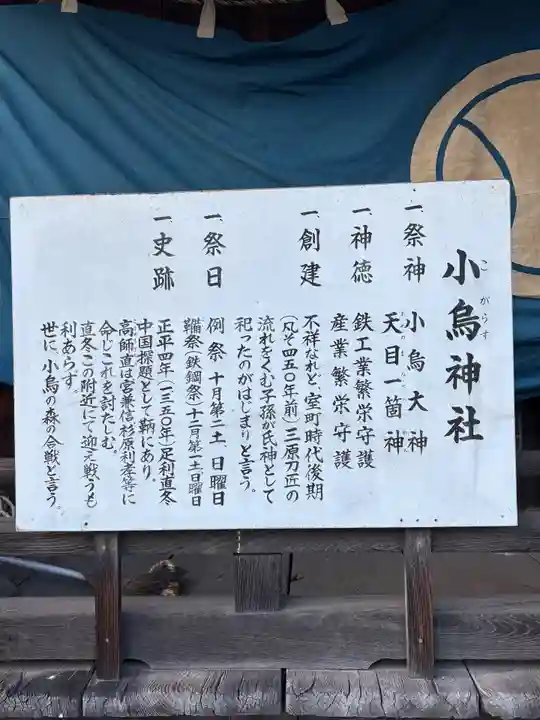 小烏神社
こがらす
一、祭神　小烏大神
天目一箇神
一、神徳　鉄工業繁栄守護
産業繁栄守護
一、創建　不祥なれど、室町時代後期
（凡そ四五〇年前）三原刀匠の
流れをくむ子孫が氏神として
祀ったのがはじまりと言う。
一、祭日　例祭　十月第二土、日曜日
鞴祭（鉄鋼祭）十二月第一土日曜日
一、史跡　正平四年（一三五〇年）足利直冬
中国探題として鞆にあり。
高師直は宮兼信杉原利孝等に
命じこれを討たしむ。
直冬この附近にて迎え戦うも
利あらず。
世に、小烏の森の合戦と言う。